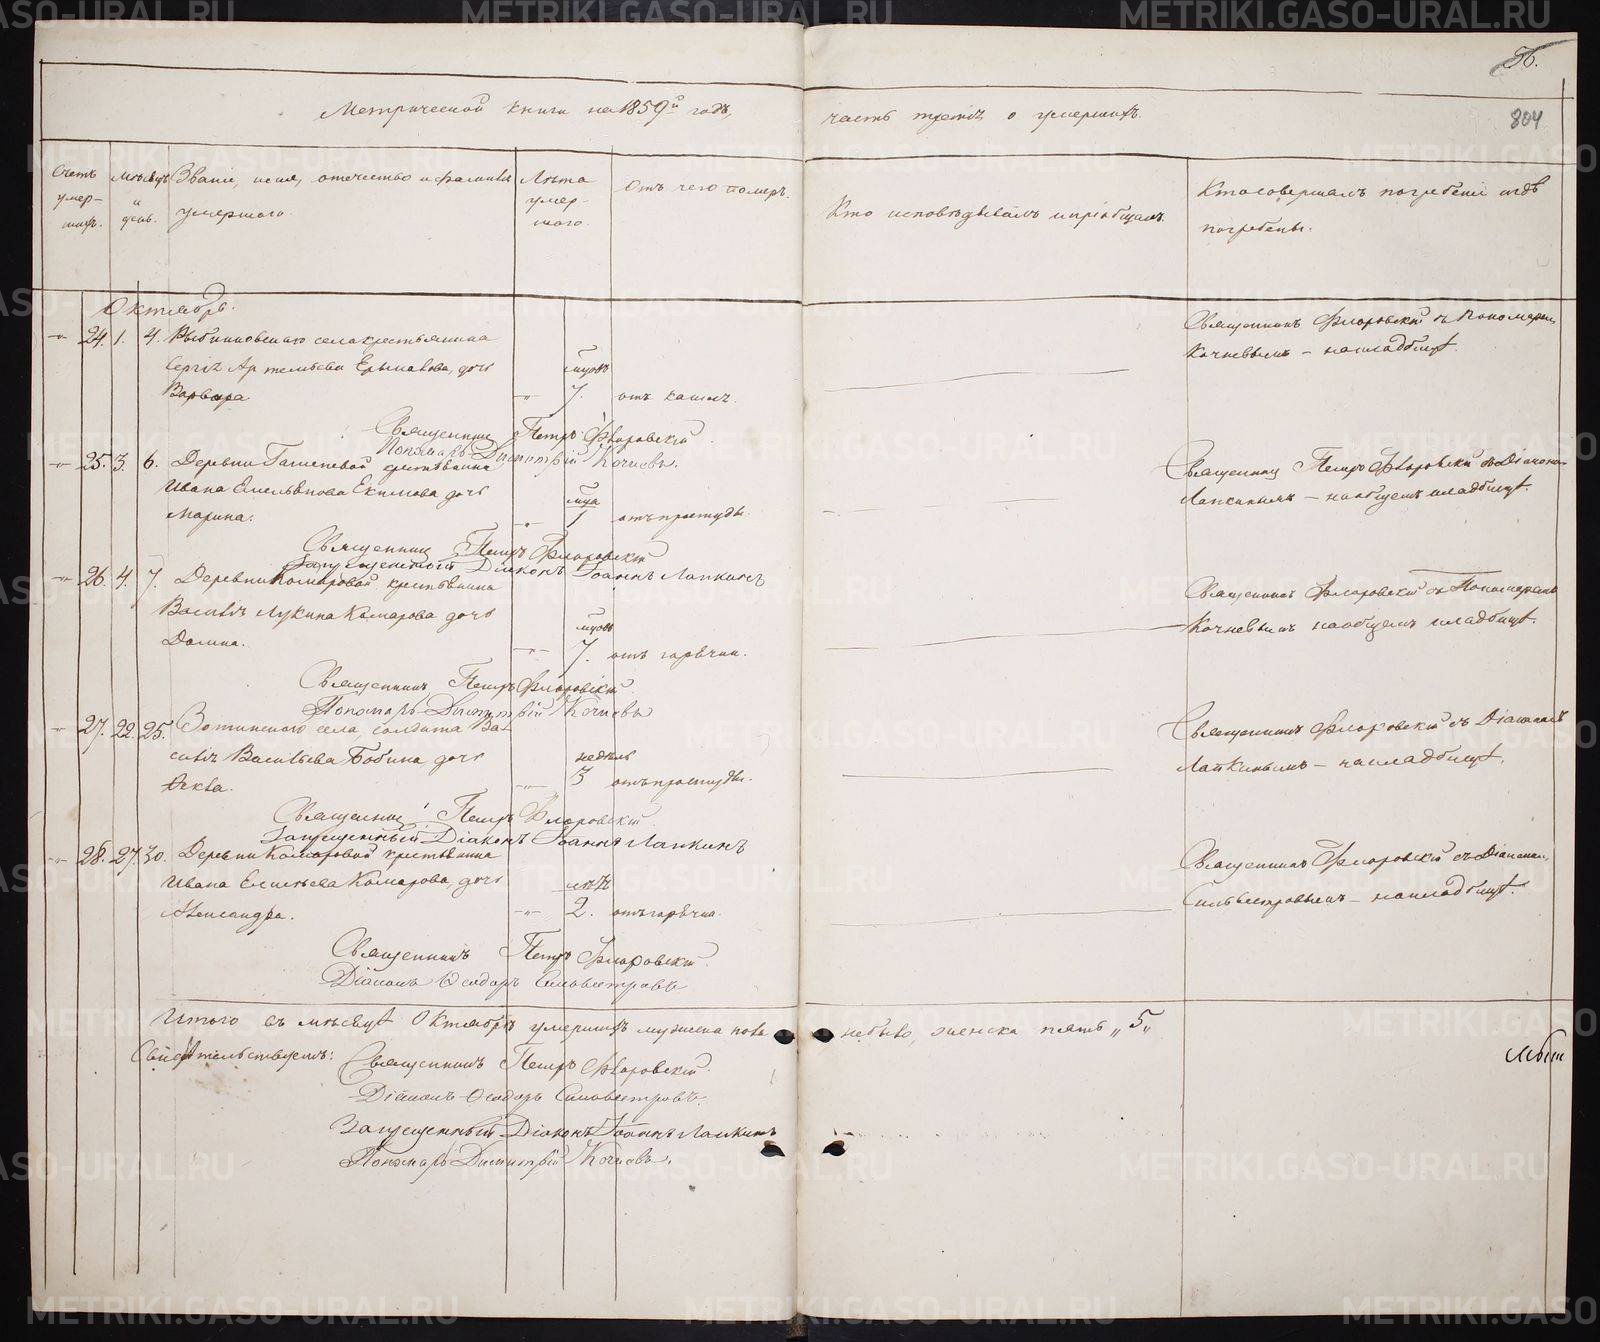 56.
804
Метрической книги на 1859й годъ,
часть третія о умершихъ.
Счетъ умер-шихъ.
Мѣсяцъ и день.
Званіе, имя, отечество и фамилія умершаго.
Лѣта умер-шаго.
Отъ чего померъ.
Кто исповѣдывалъ и пріобщалъ.
Кто совершалъ погребеніе и гдѣ погребены.
Октябрь.
24. 1. 4. села крестьянина
Сергія Артемьева Ермакова, дочь
мѣсяц.
Варвара 7. отъ кашля.
Священникъ Флоровскій съ Пономаремъ
Кочневымъ – на кладбищѣ.
Священникъ Петръ Флоровскій
Пономарь Димитрій Кочневъ.
25. 3. 6. Деревни крестьянина
Ивана Емельянова Екимова дочь
Марина. 1 отъ простуды.
Священникъ Петръ Флоровскій съ Діакономъ
Лапкинымъ – на общемъ кладбищѣ.
Священникъ Петръ Флоровскій
Запрещенный Діаконъ Іоаннъ Лапкинъ
26. 4. 7. Деревни Комаровой крестьянина
Василія Лукина Комарова дочь
Домна. 7. отъ горячки.
Священникъ Флоровскій съ Пономаремъ
Кочневымъ на общемъ кладбищѣ.
Священникъ Петръ Флоровскій
Пономарь Димитрій Кочневъ
27. 22. 25. села, солдата Ва-
силія Васильева Бобина дочь
недѣль
Ѳекла. 3 отъ простуды.
Священникъ Флоровскій съ Діакономъ
Лапкинымъ – на кладбищѣ.
Священникъ Петръ Флоровскій
Запрещенный Діаконъ Іоаннъ Лапкинъ
28. 27. 30. Деревни Комаровой крестьянина
Ивана Комарова, дочь
лѣтъ
Александра. 2. отъ горячки.
Священникъ Флоровскій съ Діакономъ
Сильвестровымъ – на кладбищѣ.
Священникъ Петръ Флоровскій.
Діаконъ Ѳеодоръ Сильвестровъ
Итого въ мѣсяцѣ Октябрѣ умершихъ мужеска пола не было, женска пять „5„
Свидѣтельствуемъ: Священникъ Петръ Флоровскій.
Діаконъ Ѳеодоръ Сильвестровъ.
Запрещенный Діаконъ Іоаннъ Лапкинъ
Пономарь Димитрій Кочневъ.
METRIKI.GASO-URAL.RU